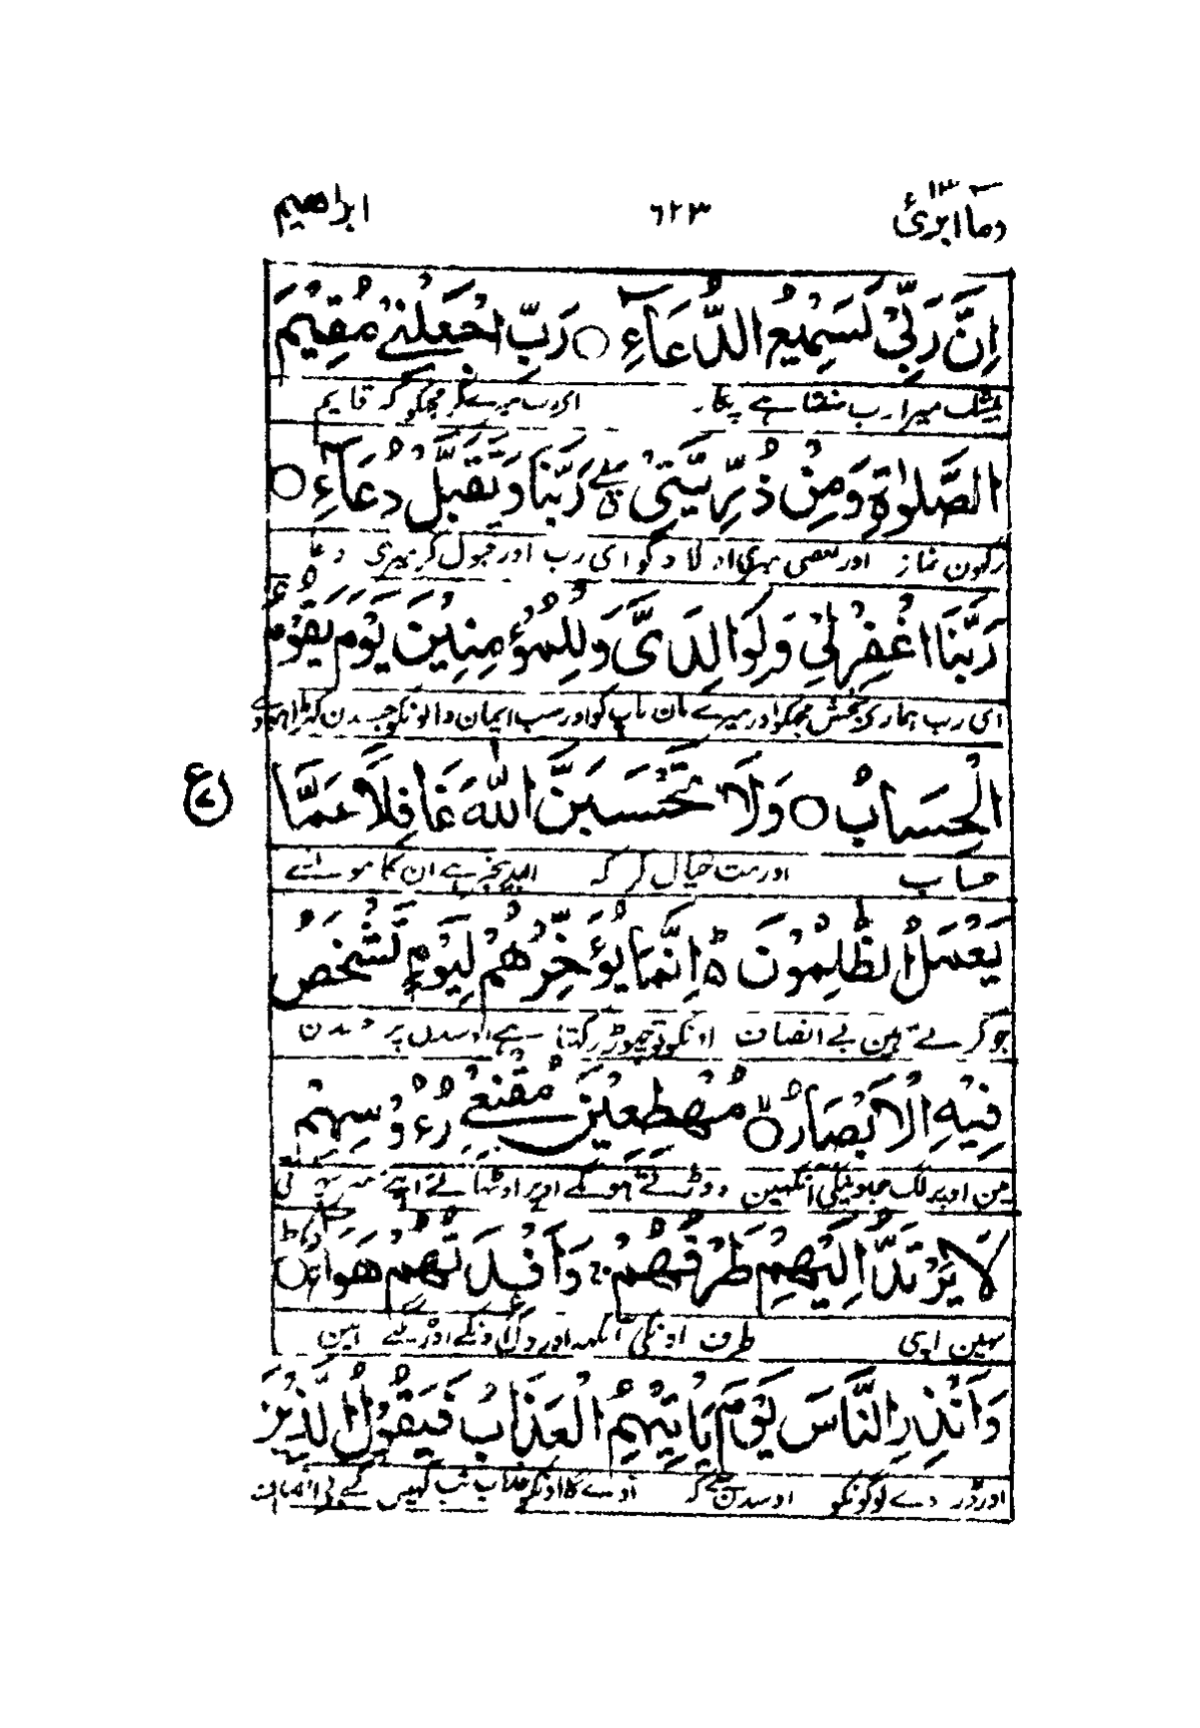 وما ابرئ ۱۳ ۶۲۳ ابراهیم
اِنَّ رَبِّیْ لَسَمِیْعُ الدُّعَآءِ ○ رَبِّ اجْعَلْنِیْ مُقِیْمَ
بیشک میرا رب سنتا ہے پکار۔ ای رب میرے کر مجھکو کہ قایم
الصَّلٰوةِ وَمِنْ ذُرِّیَّتِیْ رَبَّنَا وَتَقَبَّلْ دُعَآءِ ○
رکہون نماز اور بعضی میری اولاد کو ای رب اور قبول کر میری دعا
رَبَّنَا اغْفِرْ لِیْ وَلِوَالِدَیَّ وَلِلْمُؤْمِنِیْنَ یَوْمَ یَقُوْمُ
ای رب ہماری بخش مجھکو اور میرے مان باپ کو اور سب ایمان والونکو جسدن کھڑا ہووے
الْحِسَابُ ○ وَلَا تَحْسَبَنَّ اللّٰهَ غَافِلًا عَمَّا
ع
حساب اور مت خیال کر کہ اللہ بیخبر ہے ان کامو سے
یَعْمَلُ الظّٰلِمُوْنَ ؕ اِنَّمَا یُؤَخِّرُهُمْ لِیَوْمٍ تَشْخَصُ
جو کرتے ہین بے انصاف اونکو تو چھوڑ رکھتا ہے اوسدن پر جسدن
فِیْهِ الْاَبْصَارُ ○ مُهْطِعِیْنَ مُقْنِعِیْ رُءُوْسِهِمْ
مین اوپر لگ جاوینگی آنکھین دوڑتے ہونگے اوپر اوٹھائے اپنے سر
لَا یَرْتَدُّ اِلَیْهِمْ طَرْفُهُمْ ۚ وَاَفْـِٕدَتُهُمْ هَوَآءٌ ○
نہین اپنی طرف اونکی آنکھہ اور دل اونکے اوڑ گئے ہین
وَاَنْذِرِ النَّاسَ یَوْمَ یَاْتِیْهِمُ الْعَذَابُ فَیَقُوْلُ الَّذِیْنَ
اور ڈر دے لوگونکو اوسدن سے کہ آوے گا اونکو عذاب تب کہین گے بے انصاف